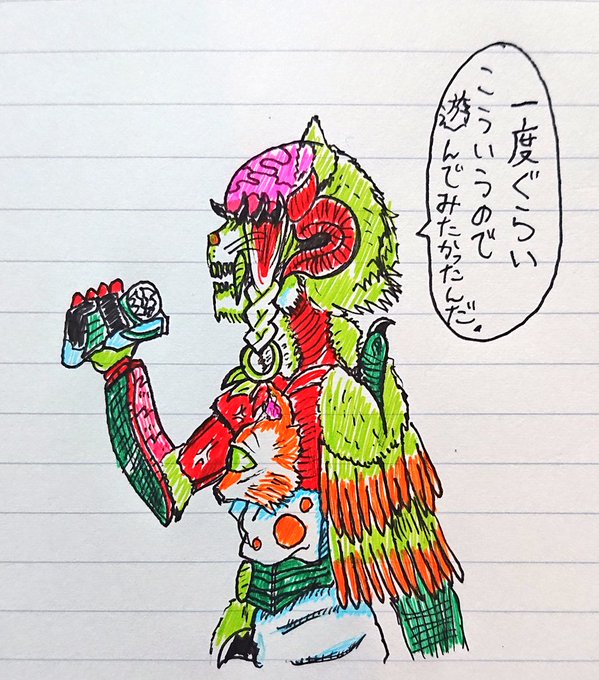 一度ぐらい
こういうので
遊んでみたかったんだ。